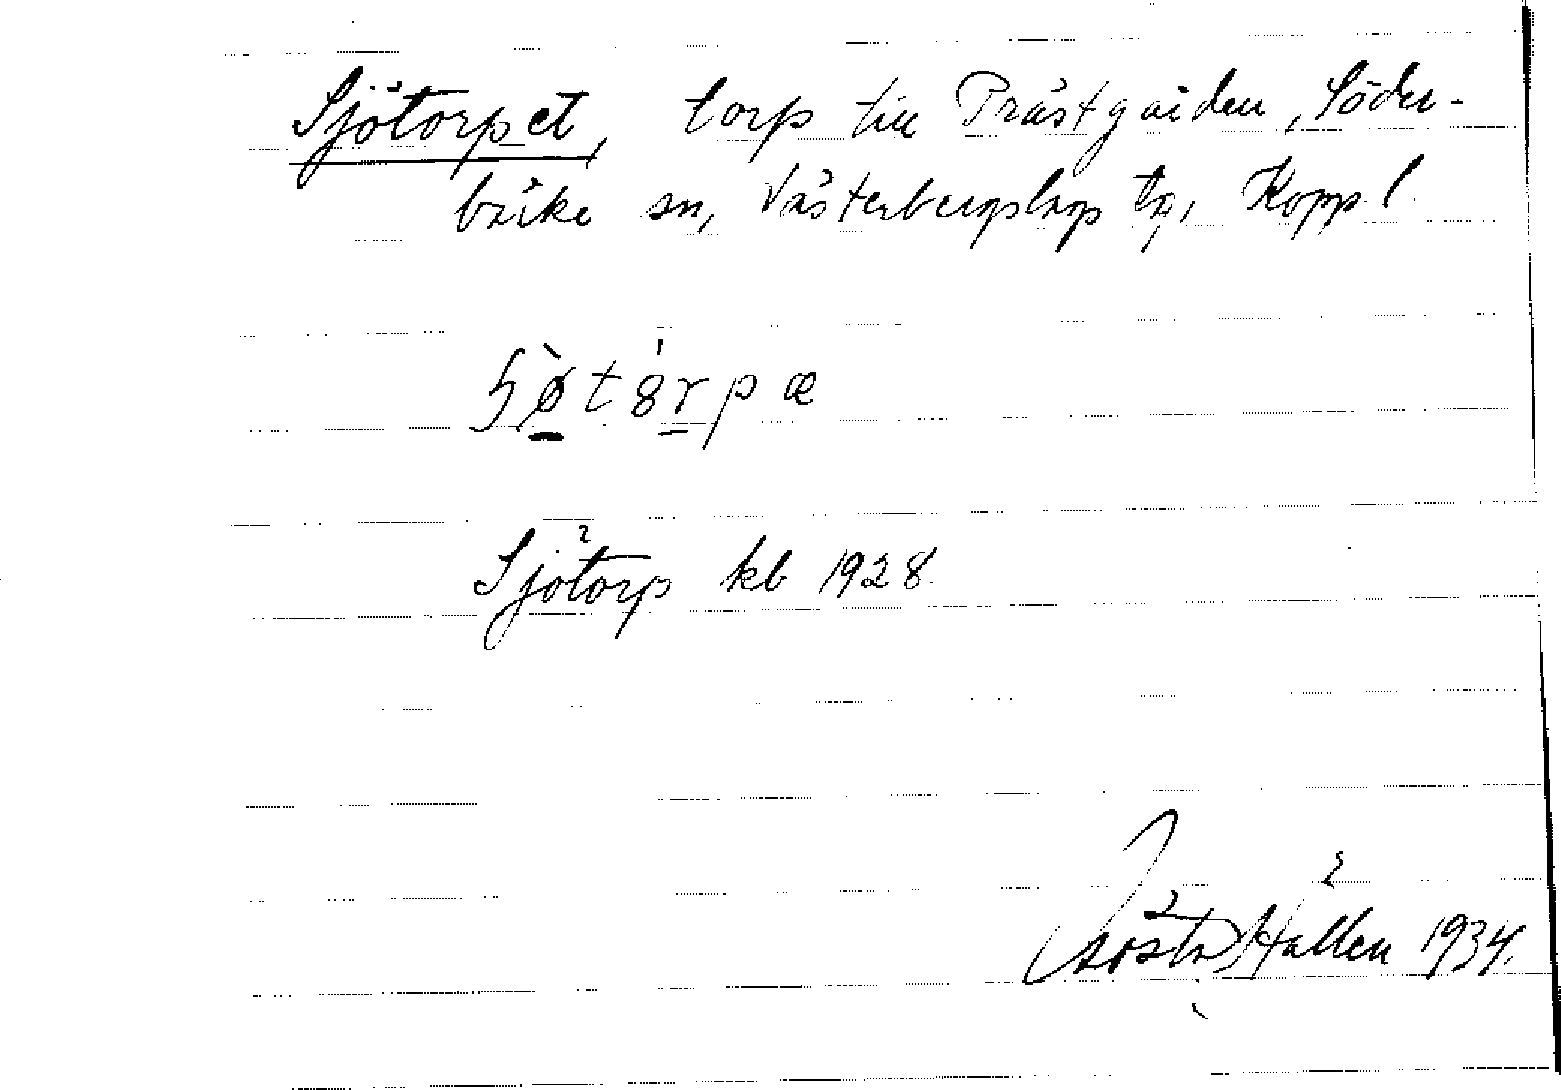 Sjötorpet, torp till Prästgården, Söder-
bärke sn, Västerbergslags tg, Kopp. l
Sjötorp kb 1928.
Gösta Hallen 1934.